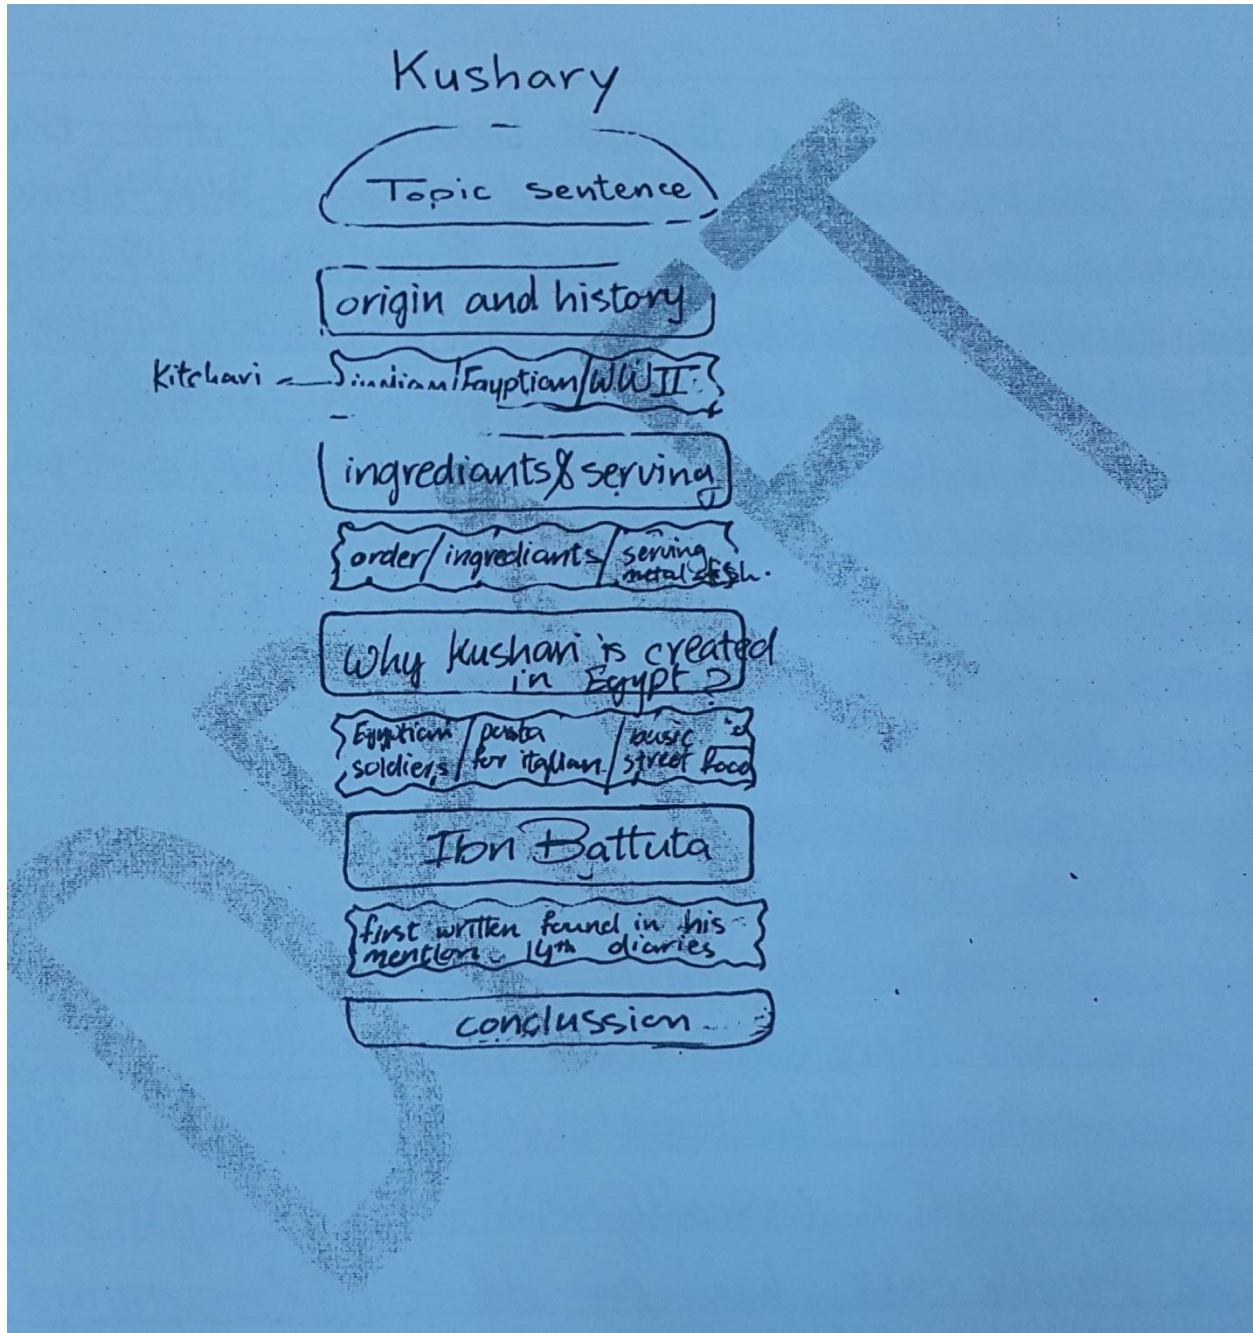 Kushary
Topic sentence
origin and history
Kitchari
indian/Egyptian/WWII
ingrediants & serving
order/ingrediants/serving
metal dish.
Why Kushari is created
in Egypt?
Egyptian / pasta / basic
soldiers / for italian / street food
Ibn Battuta
first written found in his
mention 14th diaries
conclussion
DRAFT